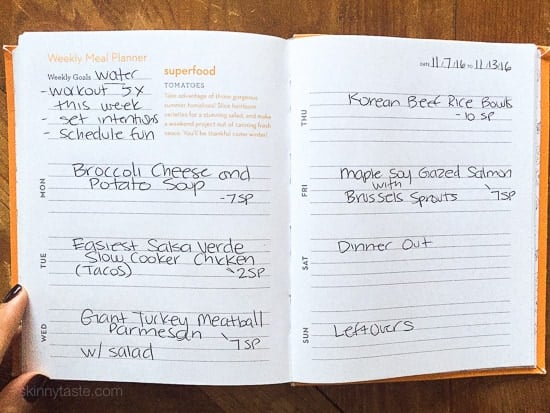 Weekly Meal Planner
Weekly Goals water
- workout 5x
this week
- set intentions
- schedule fun
superfood
TOMATOES
Take advantage of those gorgeous
summer tomatoes! Slice heirloom
varieties for a stunning salad, and make
a weekend project out of canning fresh
sauce. You'll be thankful come winter!
MON
Broccoli Cheese and
Potato Soup
-7SP
TUE
Easiest Salsa Verde
Slow Cooker Chicken
(Tacos) 2SP
WED
Giant Turkey Meatball
Parmesan 7SP
w/ salad
DATE 11/7/16 TO 11/13/16
THU
Korean Beef Rice Bowls
-10 SP
FRI
Maple Soy Gazed Salmon
with
Brussels Sprouts 7SP
SAT
Dinner Out
SUN
Leftovers
skinnytaste.com